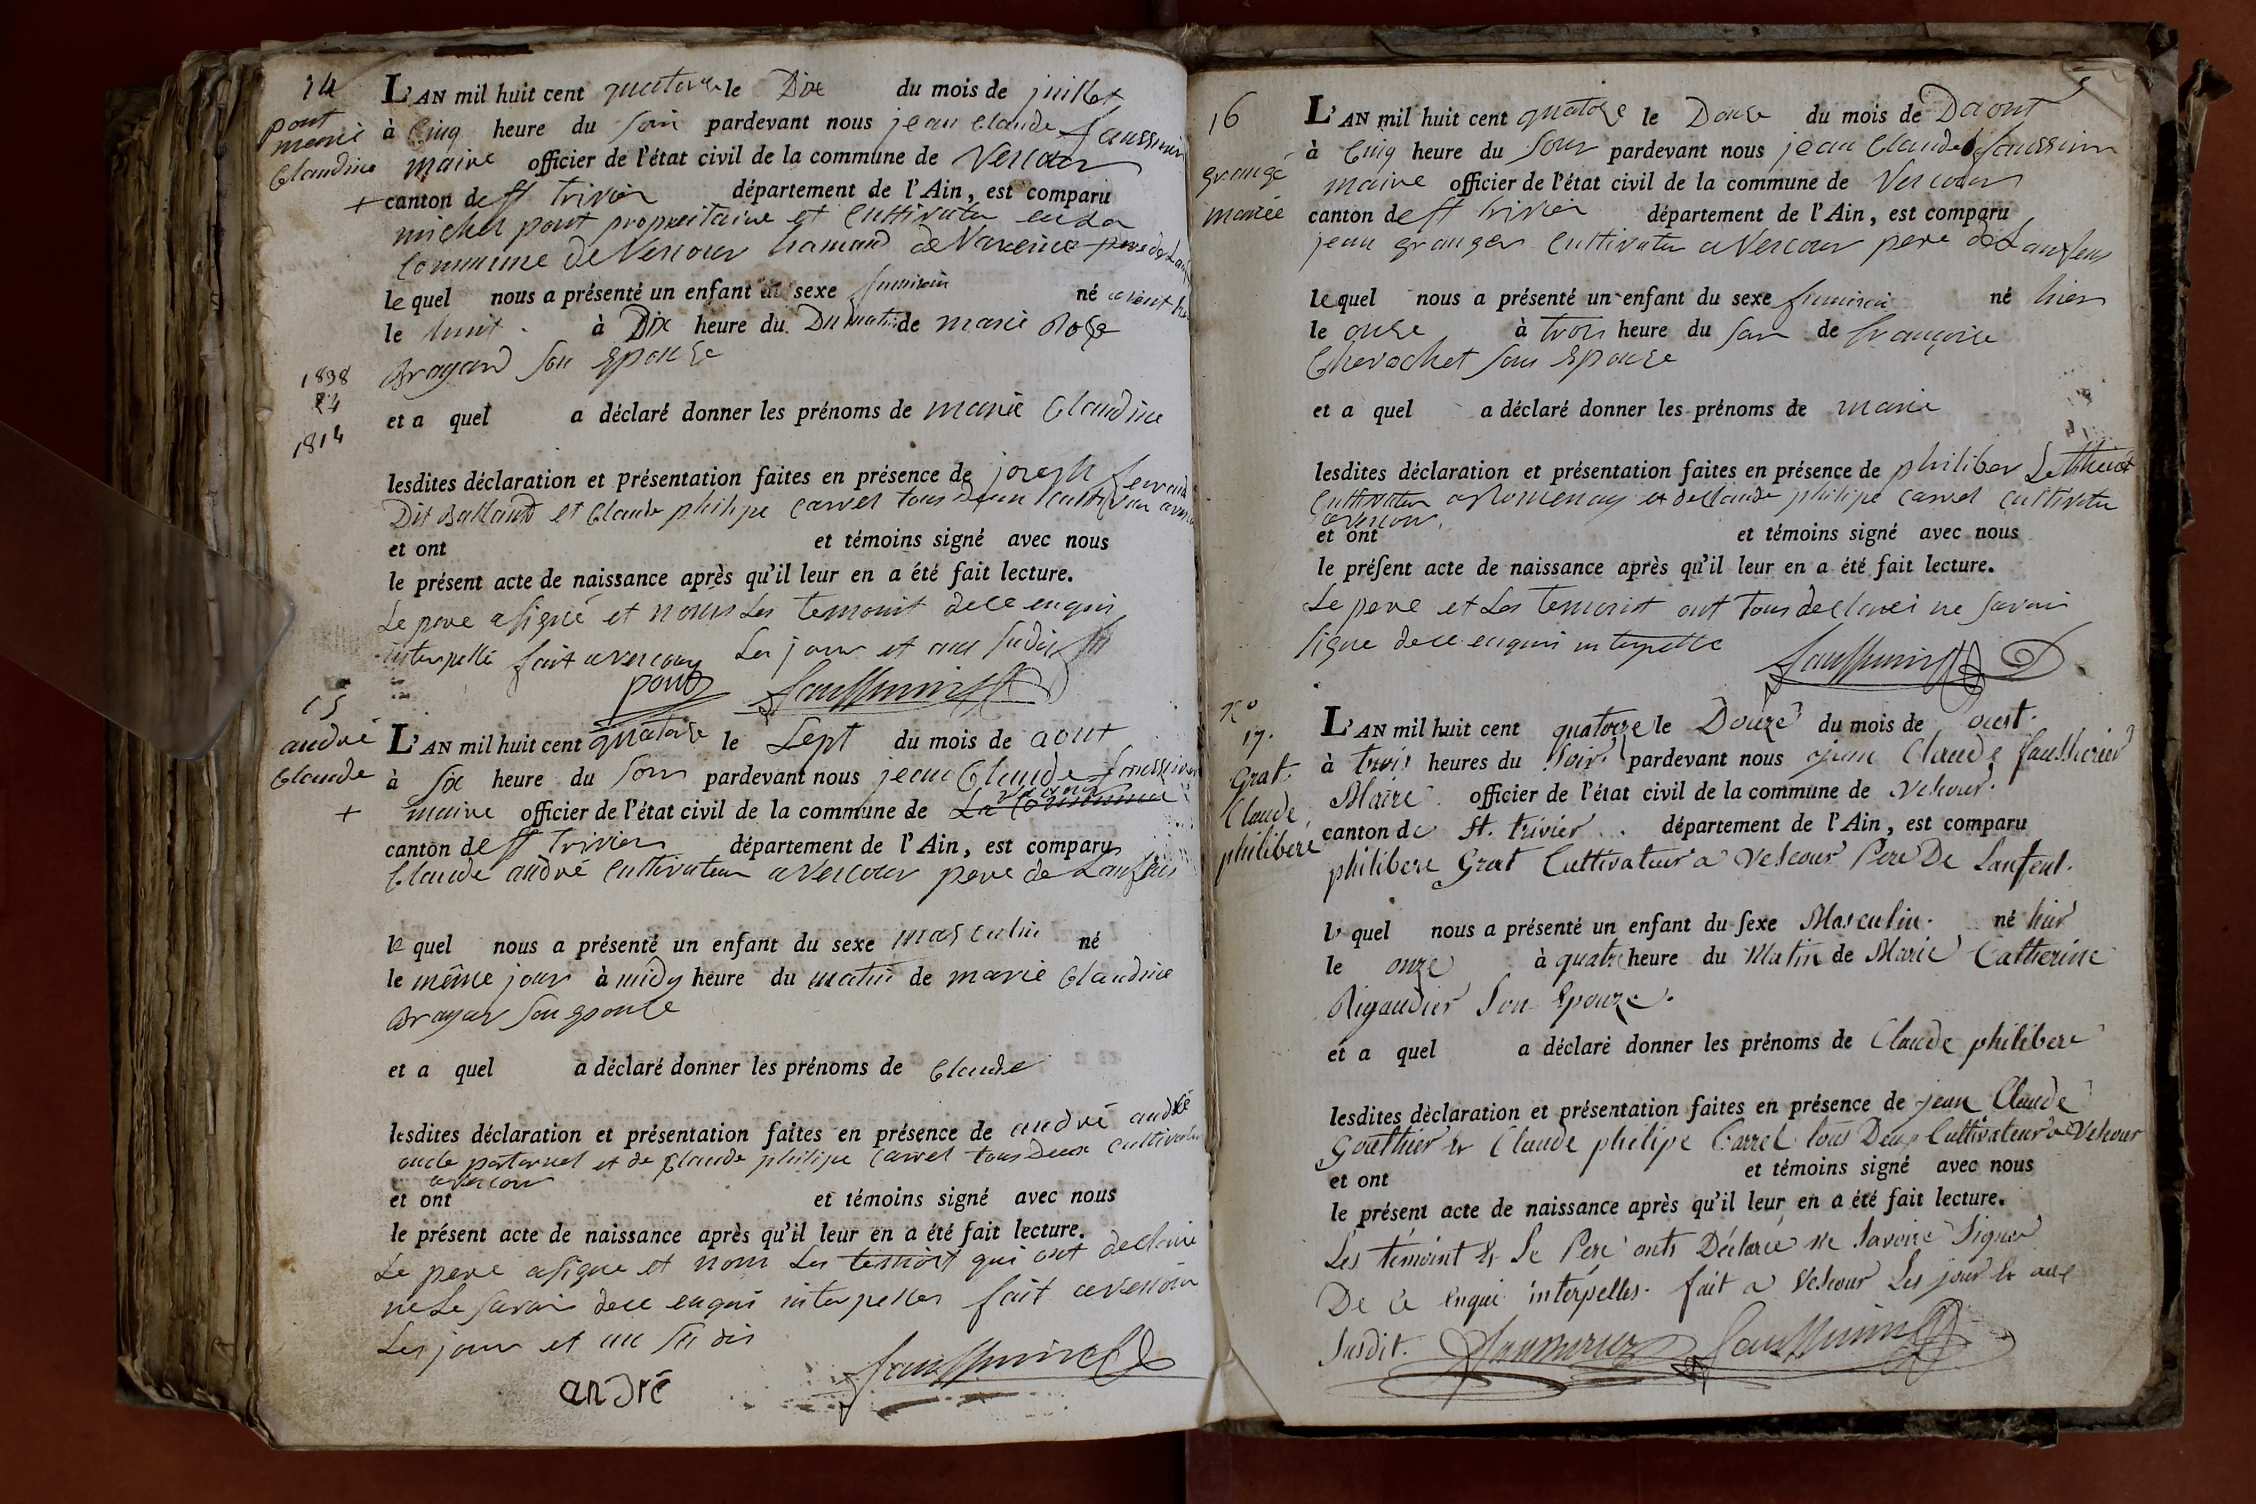 14
pont
marie
Claudine
+
L'AN mil huit cent quatorze le Dix du mois de juillet
à Cinq heure du soir pardevant nous jean Claude faussurier
maire officier de l'état civil de la commune de Vercour
canton de st trivier département de l'Ain, est comparu
michel pont propriaitaire et Cultivateur en La
Commune de Vercour hamaud de Vareine pere de Lanf
le quel nous a présenté un enfant du sexe feminin né avant hier
le huit à Dix heure du Du matin de marie
Brayard son Epouze
1838
24
1814
et a quel a déclaré donner les prénoms de marie Claudine
lesdites déclaration et présentation faites en présence de joseph
Dit et Claude philipe Carrel tous deux
et ont et témoins signé avec nous
le présent acte de naissance après qu'il leur en a été fait lecture.
Le pere a signé et nom Les temoint dece enquis
interpellé fait a vercour Les jour et an sudis
pont faussurier
15
andré
Claude
+
L'AN mil huit cent quatorze le Sept du mois de aout
à Six heure du soir pardevant nous jean Claude faussurier
maire officier de l'état civil de la commune de vercour
canton de st trivier département de l'Ain, est comparu
Claude andré Cultivateur a Vercour pere de Lanfens
le quel nous a présenté un enfant du sexe masculin né
le même jour à midy heure du matin de marie Claudine
Brayar son epouse
et a quel a déclaré donner les prénoms de Claude
lesdites déclaration et présentation faites en présence de andré andré
oncle paternel et de Claude philipe Carrel tous Deux Cultivateur
a vercour
et ont et témoins signé avec nous
le présent acte de naissance après qu'il leur en a été fait lecture.
Le pere a signe et nom Les temoist qui ont declaire
ne Le savoir dece enquis interpeller fait a vercour
Les jour et an su dis
andré faussurier
5
16
grange
mariee
L'AN mil huit cent quatorze le Douze du mois de Daout
à Cinq heure du soir pardevant nous jean Claude faussurier
maire officier de l'état civil de la commune de Vercour
canton de st trivier département de l'Ain, est comparu
jean granger Cultivateur a Vercour pere de Lanfens
le quel nous a présenté un enfant du sexe feminin né hier
le onze à trois heure du soir de françoise
Chevrochet son Epouze
et a quel a déclaré donner les prénoms de marie
lesdites déclaration et présentation faites en présence de philiber
Cultivateur a Romenay et de Claude philipe Carrel Cultivateur
a vercour
et ont et témoins signé avec nous
le présent acte de naissance après qu'il leur en a été fait lecture.
Le pere et Les temoint ont Tous declarei ne savoir
signe dece enquis interpelle
faussurier
No
17.
Grat.
Claude,
philibere
L'AN mil huit cent quatorze le Douze du mois de aout.
à trois heures du soir pardevant nous jean Claude faussurier
Maire officier de l'état civil de la commune de Vescour.
canton de St. trivier département de l'Ain, est comparu
philibere Grat Cultivateur a Vescour Pere De Lanfent.
le quel nous a présenté un enfant du sexe Masculin. né hier
le onze à quatre heure du Matin de Marie Catherine
Rigaudier Son Epouze.
et a quel a déclaré donner les prénoms de Claude philibere
lesdites déclaration et présentation faites en présence de jean Claude
Gouthier & Claude philipe Carrel tous Deux Cultivateur a Vescour
et ont et témoins signé avec nous
le présent acte de naissance après qu'il leur en a été fait lecture.
Les témoint & Le Pere onts Déclaré ne savoire Signer
De ce enqui interpelles. fait a Vescour Les jour & an
Susdit. faussurier